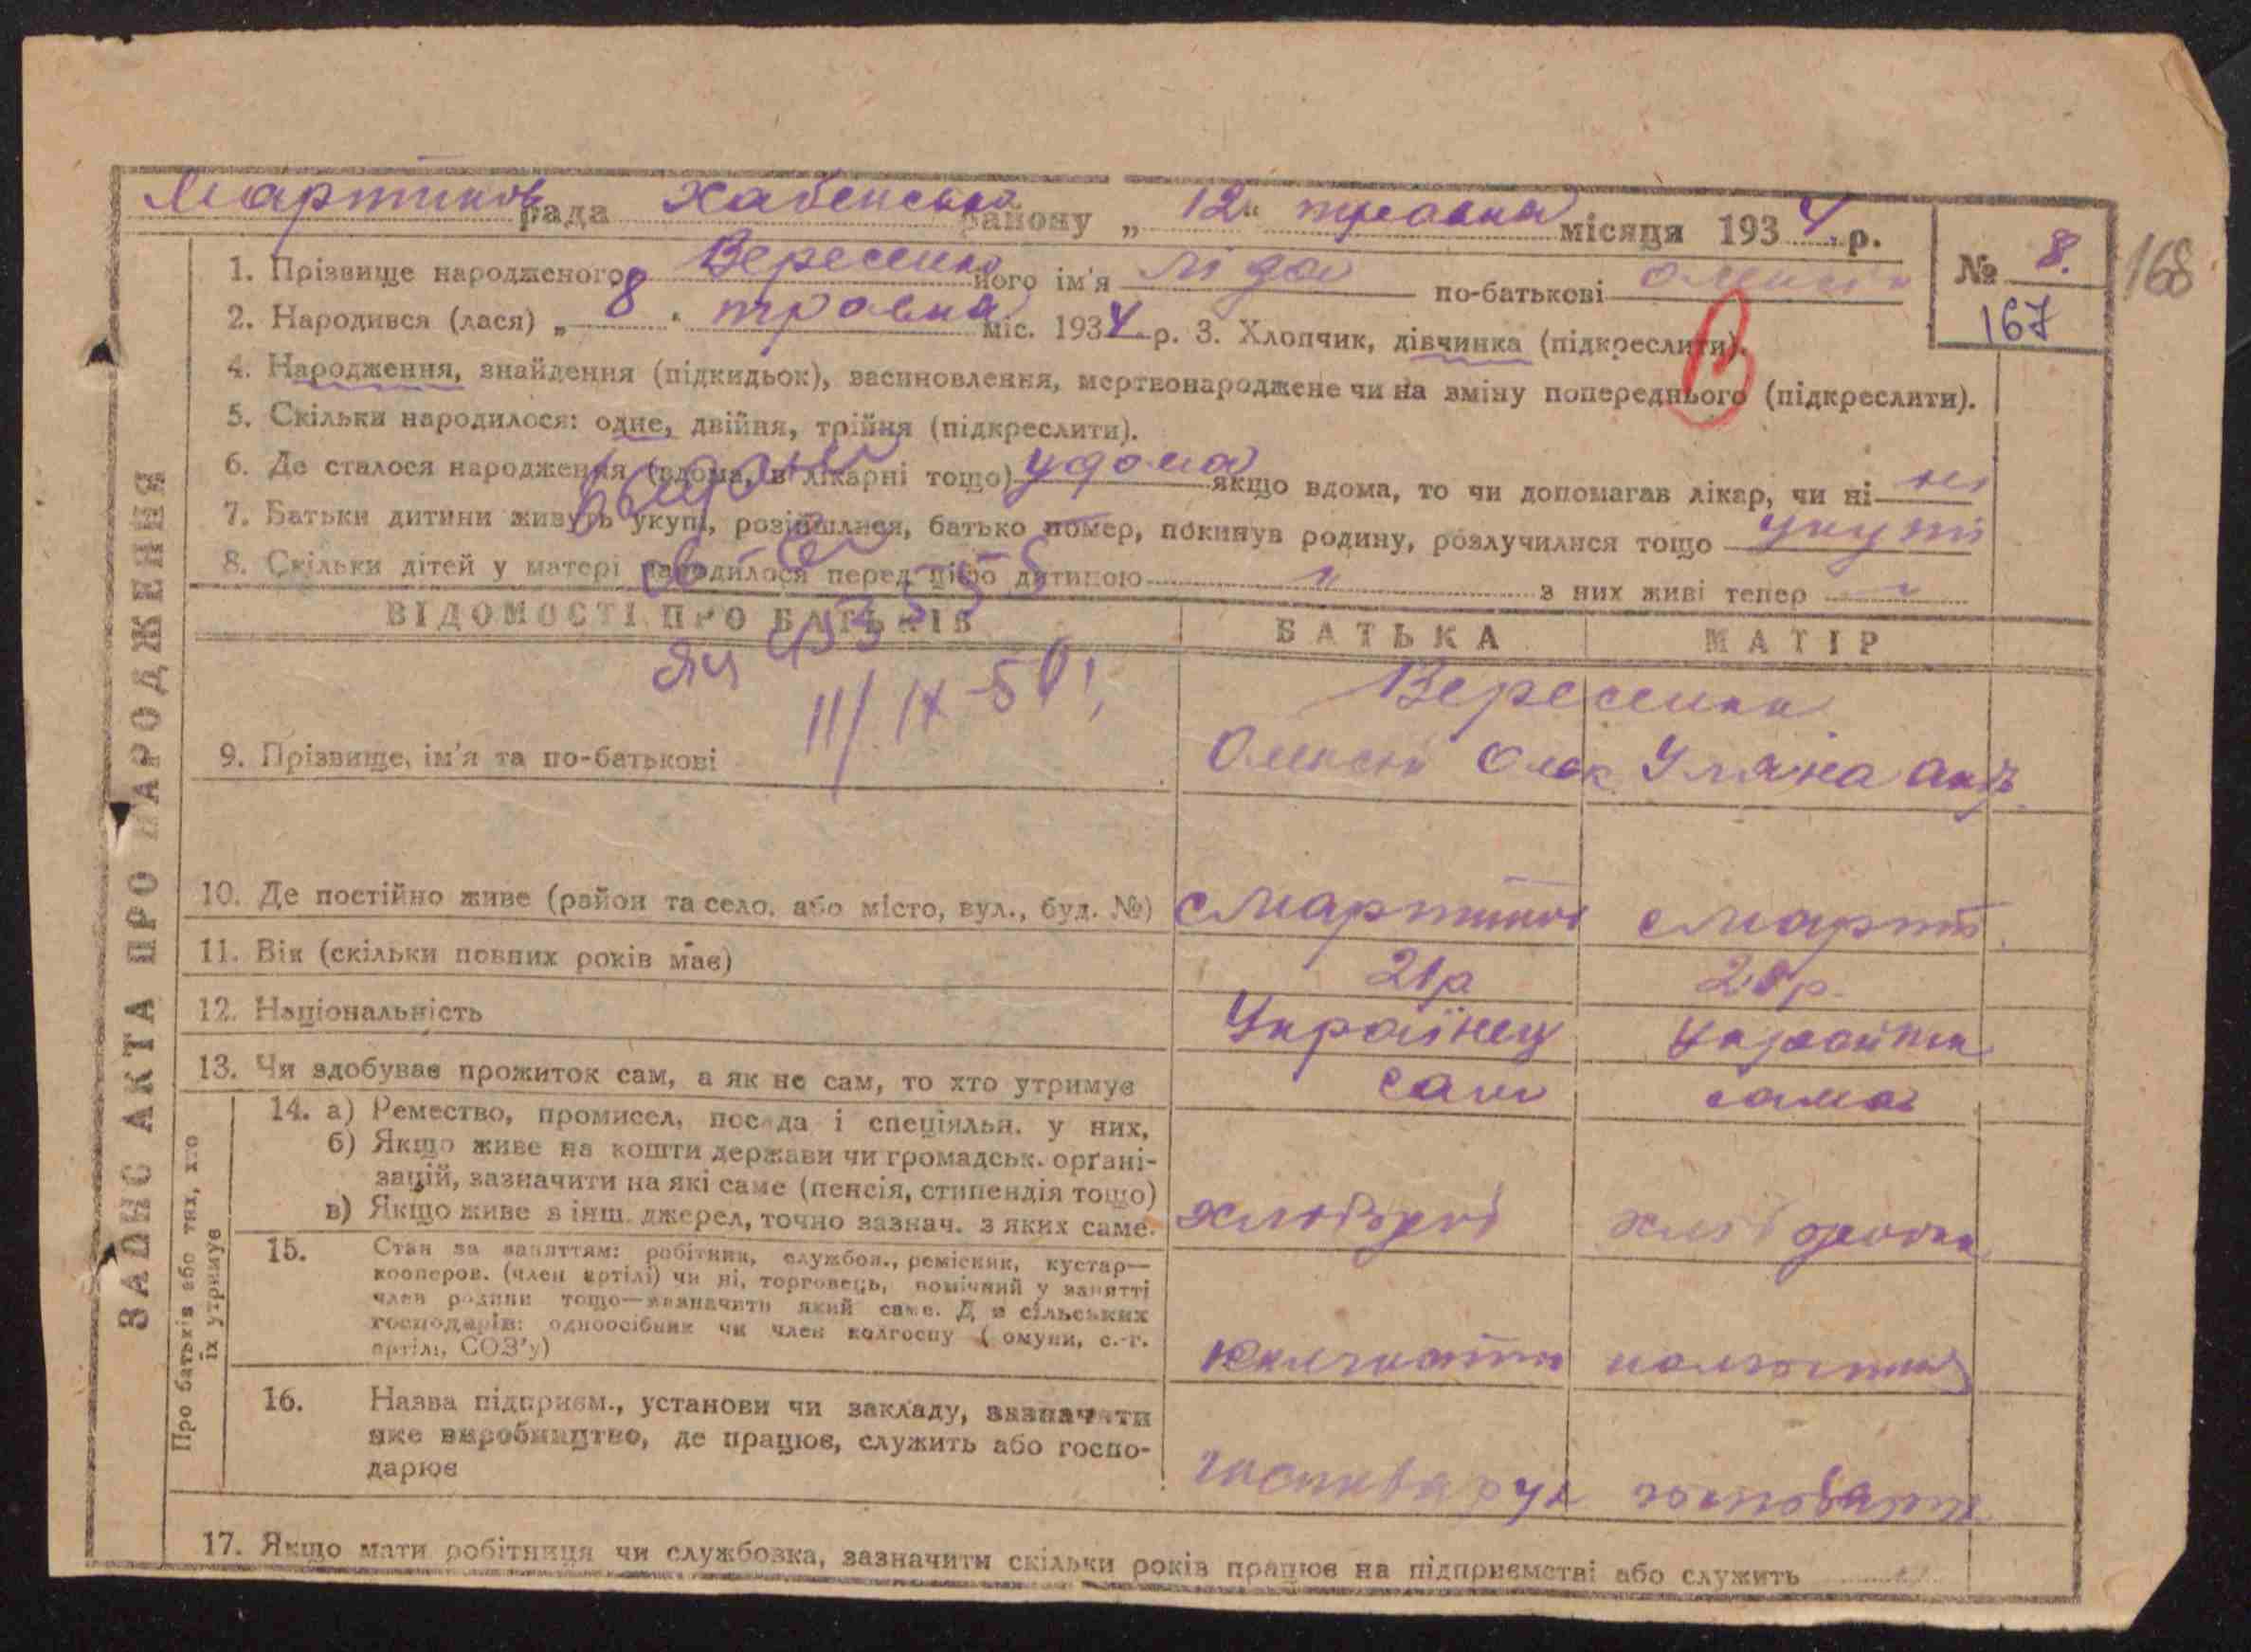 Мартинов рада Хабенська району „ 12 " травня місяця 1934 р.
№ 8.
168
167
1. Прізвище народженого його ім'я Ліда по-батькові
2. Народився (лася) „ 8 " травня міс. 1934 р. 3. Хлопчик, дівчинка (підкреслити).
4. Народження, знайдення (підкидьок), засиновлення, мертвонароджене чи на зміну попереднього (підкреслити).
5. Скільки народилося: одне, двійня, трійня (підкреслити).
6. Де сталося народження (вдома, в лікарні тощо) удома якщо вдома, то чи допомагав лікар, чи ні ні
7. Батьки дитини живуть укупі, розійшлися, батько помер, покинув родину, розлучилися тощо укупі
8. Скільки дітей у матері народилося перед цією дитиною з них живі тепер
ВІДОМОСТІ ПРО БАТЬКІВ БАТЬКА МАТІР
9. Прізвище, ім'я та по-батькові Уляна
10. Де постійно живе (район та село, або місто, вул., буд. №) с Мартинов с Март
11. Вік (скільки повних років має) 21р
12. Національність Українец Українка
13. Чи здобуває прожиток сам, а як не сам, то хто утримує сам сама
14. а) Ремество, промисел, посада і спеціяльн. у них,
б) Якщо живе на кошти держави чи громадськ. орґані-
зацій, зазначити на які саме (пенсія, стипендія тощо)
в) Якщо живе з інш. джерел, точно зазнач. з яких саме.
15. Стан за заняттям: робітник, службов., ремісник, кустар—
кооперов. (член артілі) чи ні, торговець, помічний у занятті
член родини тощо—зазначити який саме. Для сільських
господарів: одноосібник чи член колгоспу (комуни, с.-г.
артілі, СОЗ'у)
16. Назва підприєм., установи чи закладу, зазначити
яке виробництво, де працює, служить або госпо-
дарює
17. Якщо мати робітниця чи службовка, зазначити скільки років працює на підприємстві або служить
ЗАПИС АКТА ПРО НАРОДЖЕННЯ
Про батьків або тих, хто
їх утримує